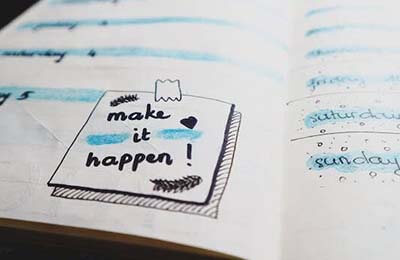 saturday 4
5
make
it
happen !
friday
saturday
sunday